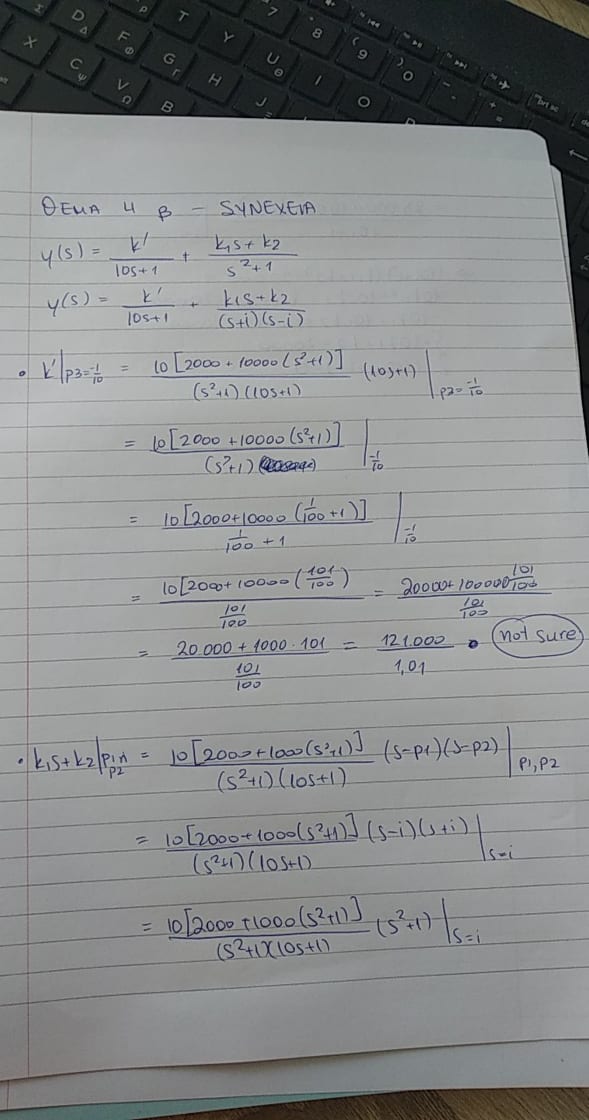 ΘΕΜΑ 4 β - SYNEXEIA
y(s) = k'/(10s+1) + (k1s + k2)/(s²+1)
y(s) = k'/(10s+1) + (k1s+k2)/((s+i)(s-i))
• k'|p3=-1/10 = 10[2000+10000(s²+1)]/((s²+1)(10s+1)) (10s+1)|p3=-1/10
= 10[2000+10000(s²+1)]/(s²+1)|-1/10
= 10[2000+10000(1/100+1)]/(1/100+1)|-1/10
= 10[2000+10000(101/100)/(101/100) = 20000+100000 101/100/(101/100)
= (20.000 + 1000·101)/(101/100) = 121.000/1,01 • not sure
• k1s+k2|p1,p2 = 10[2000+1000(s²+1)]/((s²+1)(10s+1)) (s-p1)(s-p2)|p1,p2
= 10[2000+1000(s²+1)]/((s²+1)(10s+1)) (s-i)(s+i)|s=i
= 10[2000+1000(s²+1)]/((s²+1)(10s+1)) (s²+1)|s=i